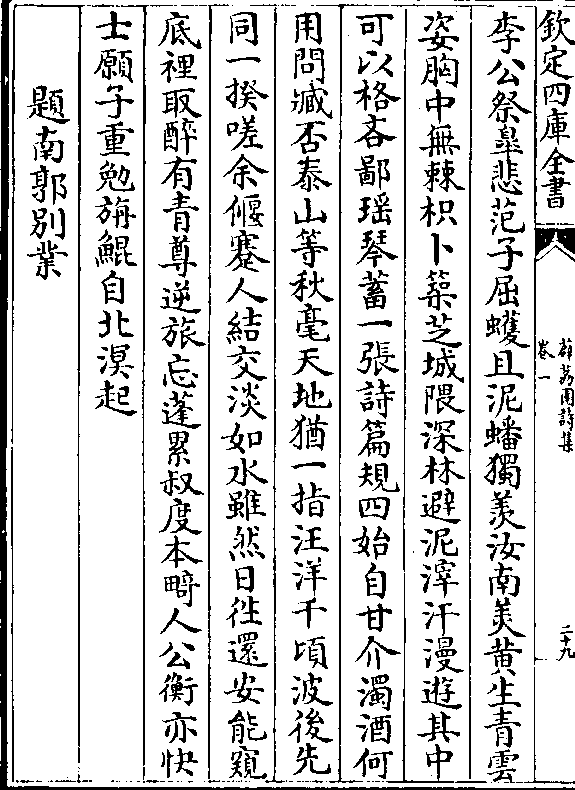 欽定四庫全書
薜荔園詩集
卷一
二十九
李公祭臯悲范子屈蠖且泥蟠獨羨汝南美黄生青雲
姿胸中無棘枳卜築芝城隈深林避泥滓汗漫遊其中
可以格吝鄙瑶琴蓄一張詩篇規四始自甘介濁酒何
用問臧否泰山等秋毫天地猶一指汪洋千頃波後先
同一揆嗟余偃蹇人結交淡如水雖然日往還安能窺
底裡取醉有青尊逆旅忘蓬累叔度本畸人公衡亦快
士願子重勉旃鯤自北溟起
題南郭别業